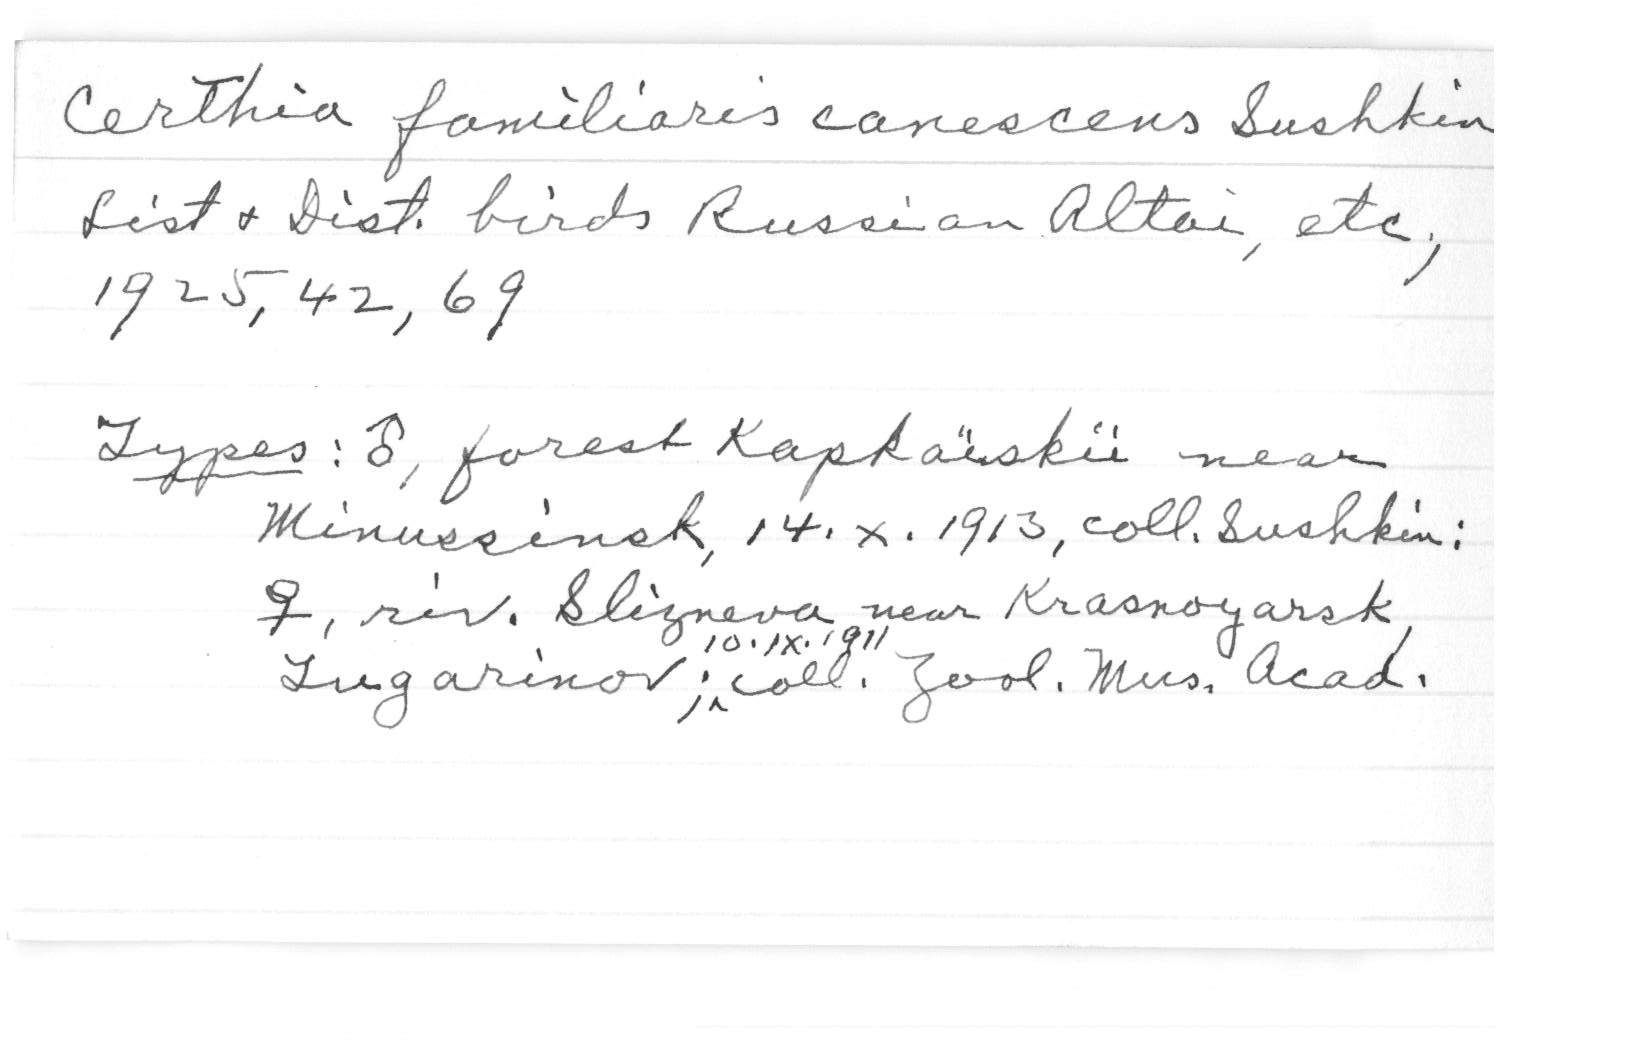 Certhia familiaris canescens Sushkin
List & Dist. birds Russian Altai, etc.,
1925, 42, 69
Types: ♂, forest Kapkaïskii near
Minussinsk, 14.x.1913, coll. Sushkin:
♀, riv. Slizneva near Krasnoyarsk,
10.IX.1911
Tugarinov; coll. Zool. Mus. Acad.